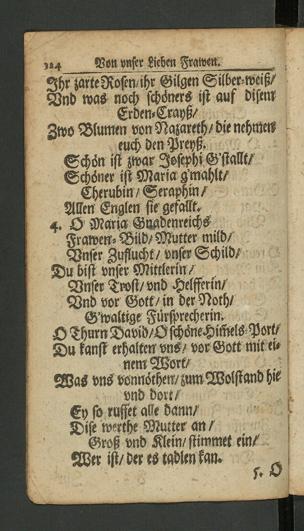 324 Von vnser Lieben Frawen.
Ihr zarte Rosen/ihr Gilgen Silber-weiß/
Vnd was noch schöners ist auf disem
Erden-Crayß/
Zwo Blumen von Nazareth/die nehmen
euch den Preyß.
Schön ist zwar Josephi G'stallt/
Schöner ist Maria g'mahlt/
Cherubin/ Seraphin/
Allen Englen sie gefallt.
4. O Maria Gnadenreichs
Frawen-Bild/Mutter mild/
Vnser Zuflucht/ vnser Schild/
Du bist vnser Mittlerin/
Vnser Trost/ vnd Helfferin/
Vnd vor Gott/ in der Noth/
G'waltige Fürsprecherin.
O Thurn David/O schöne Him̃els-Port/
Du kanst erhalten vns/ vor Gott mit ei-
nem Wort/
Was vns vonnöthen/zum Wolstand hie
vnd dort/
Ey so ruffet alle dann/
Dise werthe Mutter an/
Groß vnd Klein/stimmet ein/
Wer ist/ der es tadlen kan.
5. O